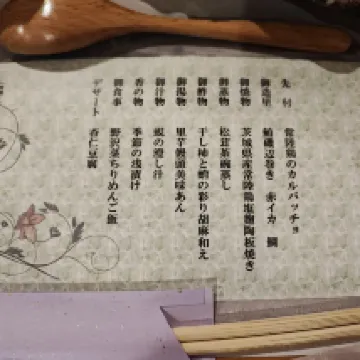 先付 常陸鶏のカルパッチョ
御造里 鮪磯辺巻き 赤イカ 鯛
御焼物 茨城県産常陸鶏塩麹陶板焼き
御蒸物 松茸茶碗蒸し
御酢物 干し柿と蛸の彩り胡麻和え
御湯物 里芋饅頭美味あん
御汁物 蜆の澄し汁
香の物 季節の浅漬け
御食事 野沢菜ちりめんご飯
デザート 杏仁豆腐